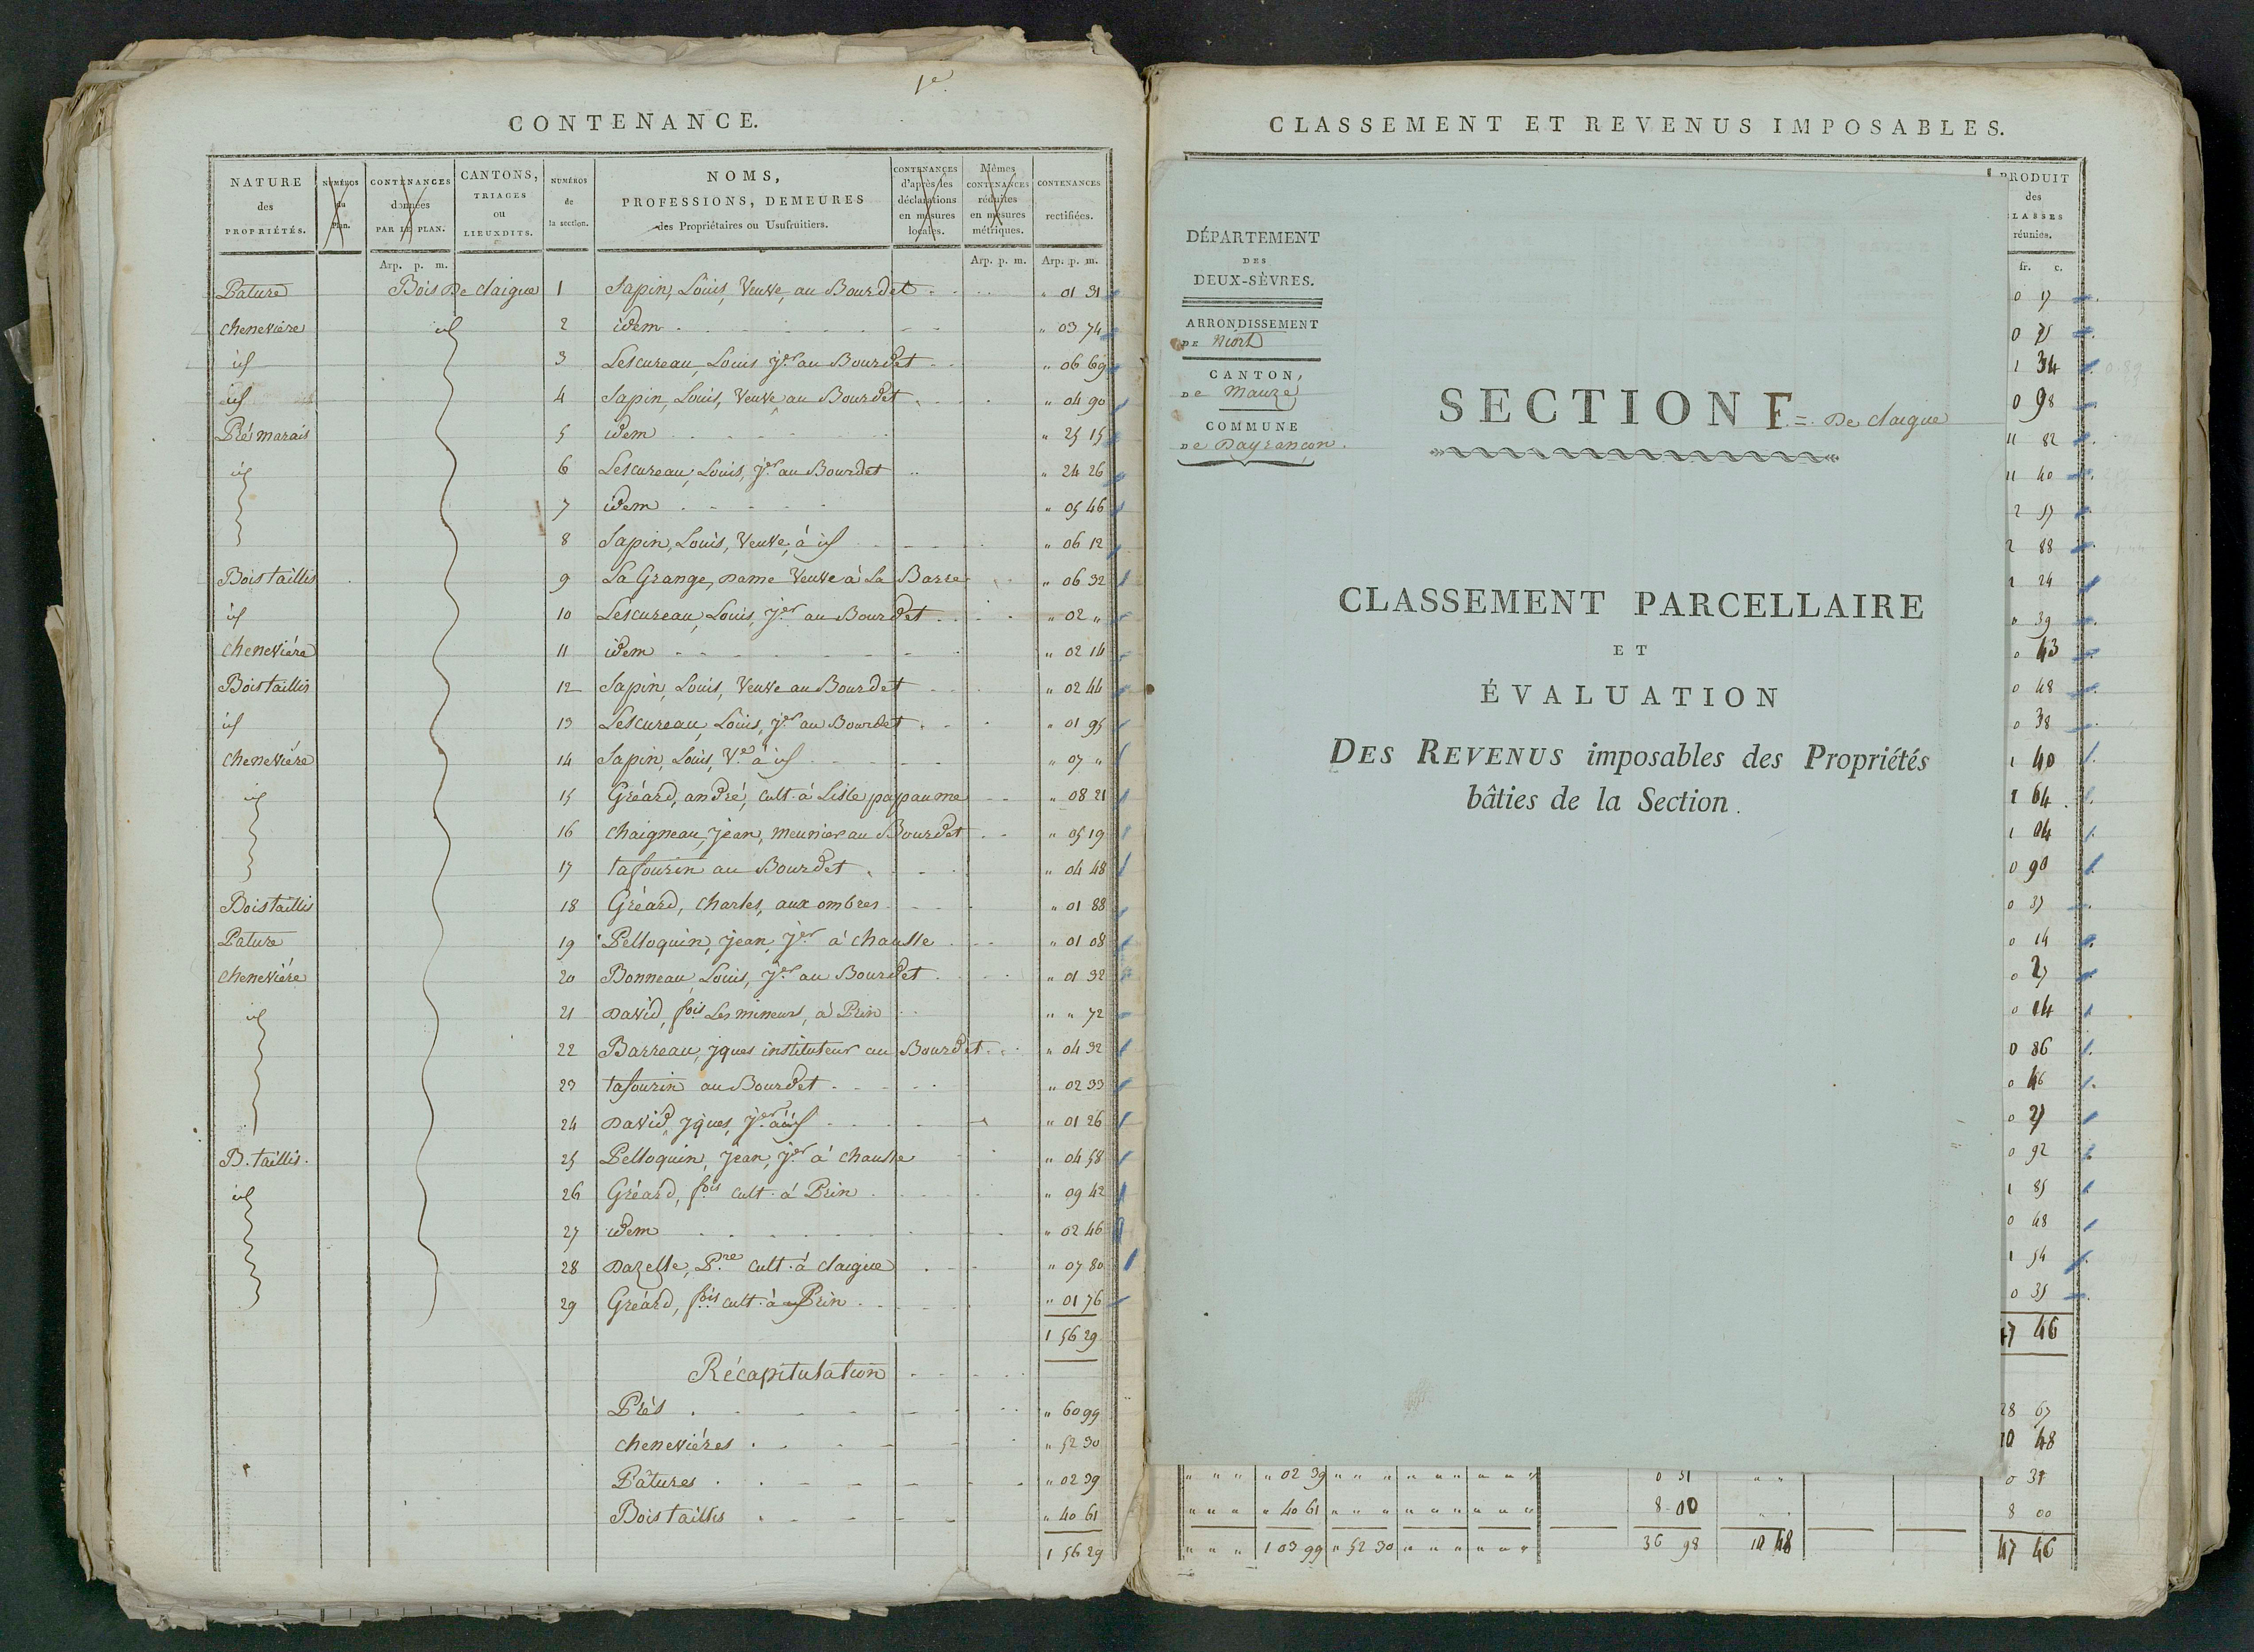 1e.
CONTENANCE.
NATURE des PROPRIÉTÉS. NUMÉROS du Plan. CONTENANCES données PAR LE PLAN. CANTONS, TRIAGES ou LIEUXDITS. NUMÉROS de la section. NOMS, PROFESSIONS, DEMEURES des Propriétaires ou Usufruitiers. CONTENANCES d'après les déclarations en mesures locales. Mêmes CONTENANCES réduites en mesures métriques. CONTENANCES rectifiées.
Arp. p. m. Arp. p. m. Arp. p. m.
Pature Bois De claigue 1 Sapin, Louis, Veuve, au Bourdet " 01 31
cheneviere id 2 idem " 03 74
id 3 Lescureau, Louis jer au Bourdet " 06 69
id 4 Sapin, Louis, Veuve au Bourdet " 04 90
Pré marais 5 idem " 25 15
id 6 Lescureau, Louis, jer au Bourdet " 24 26
7 idem " 05 46
8 Sapin, Louis, Veuve, à id " 06 12
Bois taillis 9 La Grange, Dame Veuve à La Barre " 06 32
id 10 Lescureau, Louis, jer au Bourdet " 02 "
cheneviére 11 idem " 02 14
Bois taillis 12 Sapin, Louis, Veuve au Bourdet " 02 44
id 13 Lescureau, Louis, jer au Bourdet " 01 95
cheneviére 14 Sapin, Louis, Ve à id " 07 "
id 15 Gréard, andré, cult. à Lisle papaume " 08 21
16 chaigneau, jean, meunier au Bourdet " 05 19
17 tafourin au Bourdet " 04 48
Bois taillis 18 Gréard, charles, aux ombres " 01 88
Pature 19 Pelloquin, jean, jer à chausse " 01 08
cheneviére 20 Bonneau, Louis, jer au Bourdet " 01 32
id 21 David, fois Les mineurs, à Prin " " 72
22 Barreau, jques instituteur au Bourdet " 04 32
23 tafourin au Bourdet " 02 33
24 David, jques, jer à id " 01 26
B. taillis. 25 Pelloquin, jean, jer à chausse " 04 58
id 26 Gréard, fois cult. à Prin " 09 42
27 idem " 02 46
28 Dazelle, Pre cult. à claigue " 07 80
29 Gréard, fois cult. à Prin " 01 76
1 56 29
Récapitulation
Prés " 60 99
cheneviéres " 52 30
Pâtures " 02 39
Bois taillis " 40 61
1 56 29
CLASSEMENT ET REVENUS IMPOSABLES.
DÉPARTEMENT
DES
DEUX-SÈVRES.
ARRONDISSEMENT
DE Niort
CANTON,
De Mauzé
COMMUNE
De Dayrançon.
SECTION F = De claigue
CLASSEMENT PARCELLAIRE
ET
ÉVALUATION
DES REVENUS imposables des Propriétés
bâties de la Section.
PRODUIT
des
CLASSES
réunies.
fr. c.
0 17
0 75
1 34
0 98
11 82
11 40
2 57
2 88
24
" 39
0 43
0 48
0 38
1 40
1 64
1 04
0 90
0 37
0 14
0 27
0 14
0 86
0 46
0 27
0 92
1 85
0 48
1 54
0 35
47 46
28 67
10 48
" " " " 02 39 " " " " " " " " " 0 31 " " 0 31
" " " " 40 61 " " " " " " " " " 8 00 " " 8 00
" " " 1 03 99 " 52 30 " " " " " " 36 98 10 48 47 46